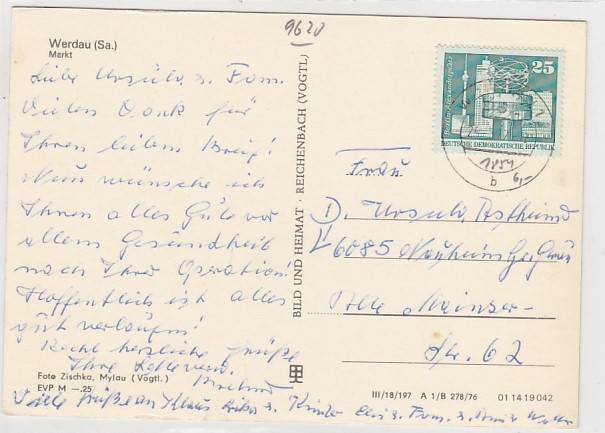 9620
Werdau (Sa.)
Markt
Liebe Ursula u. Fam.
Vielen Dank für
Ihren lieben Brief!
Nun wünsche ich
Ihnen alles Gute vor
allem Gesundheit
nach Ihrer Operation!
Hoffentlich ist alles
gut verlaufen!
Recht herzliche Grüße
Ihre
Foto Zschka, Mylau (Vogtl.)
EVP M —.25
Viele Grüße an Klaus u. Kinder u. Fam.
BILD UND HEIMAT · REICHENBACH (VOGTL)
25
DEUTSCHE DEMOKRATISCHE REPUBLIK
1851
b 6,-
Frau
D. Ursula
6085 Nauheim
Alte Mainzer-
Str. 62
III/18/197 A 1/B 278/76 01 14 19 042